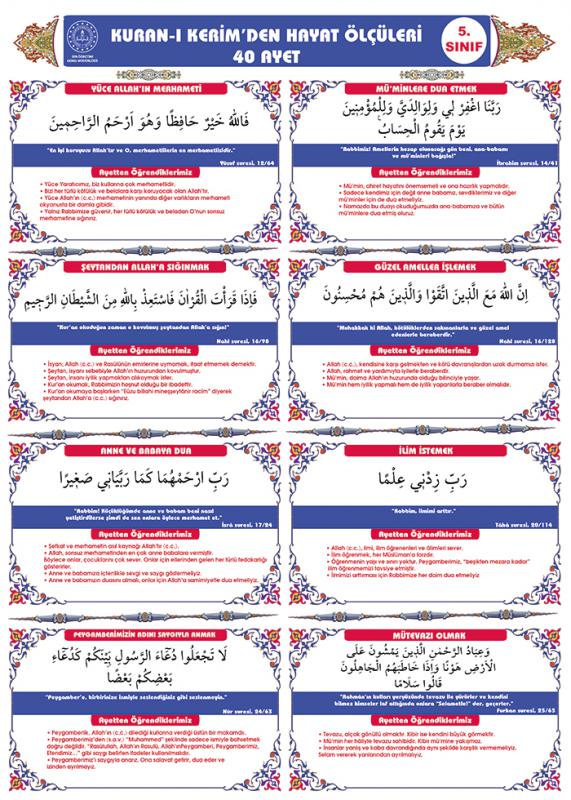 KURAN-I KERİM'DEN HAYAT ÖLÇÜLERİ
40 AYET
5.
SINIF
DİN ÖĞRETİMİ
GENEL MÜDÜRLÜĞÜ
YÜCE ALLAH'IN MERHAMETİ
فَاللّٰهُ خَيْرٌ حَافِظًا وَهُوَ اَرْحَمُ الرَّاحِمِينَ
"En iyi koruyucu Allah'tır ve O, merhametlilerin en merhametlisidir."
Yûsuf suresi, 12/64
Ayetten Öğrendiklerimiz
• Yüce Yaratıcımız, biz kullarına çok merhametlidir.
• Bizi her türlü kötülük ve belalara karşı koruyacak olan Allah'tır.
• Yüce Allah'ın (c.c.) merhametinin yanında diğer varlıkların merhameti
okyanusta bir damla gibidir.
• Yalnız Rabbimize güvenir, her türlü kötülük ve beladan O'nun sonsuz
merhametine sığınırız.
MÜ'MİNLERE DUA ETMEK
رَبَّنَا اغْفِرْ لِي وَلِوَالِدَيَّ وَلِلْمُؤْمِنِينَ
يَوْمَ يَقُومُ الْحِسَابُ
"Rabbimiz! Amellerin hesap olunacağı gün beni, ana-babamı
ve mü'minleri bağışla!"
İbrahim suresi, 14/41
Ayetten Öğrendiklerimiz
• Mü'min, ahret hayatını önemsemeli ve ona hazırlık yapmalıdır.
• Sadece kendimiz için değil anne babamız, sevdiklerimiz ve diğer
mü'minler için de dua etmeliyiz.
• Namazda bu duayı okuduğumuzda ana-babamıza ve bütün
mü'minlere dua etmiş oluruz.
ŞEYTANDAN ALLAH'A SIĞINMAK
فَاِذَا قَرَأْتَ الْقُرْاٰنَ فَاسْتَعِذْ بِاللّٰهِ مِنَ الشَّيْطَانِ الرَّجِيمِ
"Kur'an okuduğun zaman o kovulmuş şeytandan Allah'a sığın!"
Nahl suresi, 16/98
Ayetten Öğrendiklerimiz
• İsyan; Allah (c.c.) ve Rasulünün emirlerine uymamak, itaat etmemek demektir.
• Şeytan, isyanı sebebiyle Allah'ın huzurundan kovulmuştur.
• Şeytan, insanı iyilik yapmaktan alıkoymak ister.
• Kur'an okumak, Rabbimizin hoşnut olduğu bir ibadettir.
• Kur'an okumaya başlarken "Eûzu billahi mineşşeytânir racîm" diyerek
şeytandan Allah'a (c.c.) sığınırız.
GÜZEL AMELLER İŞLEMEK
اِنَّ اللّٰهَ مَعَ الَّذِينَ اتَّقَوْا وَالَّذِينَ هُمْ مُحْسِنُونَ
"Muhakkak ki Allah, kötülüklerden sakınanlarla ve güzel amel
edenlerle beraberdir."
Nahl suresi, 16/128
Ayetten Öğrendiklerimiz
• Allah (c.c.), kendisine karşı gelmekten ve kötü davranışlardan uzak durmamızı ister.
• Allah, rahmet ve yardımıyla iyilerle beraberdir.
• Mü'min, daima Allah'ın huzurunda olduğu bilinciyle yaşar.
• Mü'min hem iyilik yapmalı hem de iyilik yapanlarla beraber olmalıdır.
ANNE VE BABAYA DUA
رَبِّ ارْحَمْهُمَا كَمَا رَبَّيَانِي صَغِيرًا
"Rabbim! Küçüklüğümde anne ve babam beni nasıl
yetiştirdilerse şimdi de sen onlara öylece merhamet et."
İsrâ suresi, 17/24
Ayetten Öğrendiklerimiz
• Şefkat ve merhametin asıl kaynağı Allah'tır (c.c.).
• Allah, sonsuz merhametinden en çok anne babalara vermiştir.
Böylece onlar, çocuklarını çok sever. Onlar için ellerinden gelen her türlü fedakarlığı
gösterirler.
• Anne ve babamıza içtenlikle sevgi ve saygı göstermeliyiz.
• Anne ve babamızın duasını almalı, onlar için Allah'a samimiyetle dua etmeliyiz.
İLİM İSTEMEK
رَبِّ زِدْنِي عِلْمًا
"Rabbim, ilmimi arttır."
Tâhâ suresi, 20/114
Ayetten Öğrendiklerimiz
• Allah (c.c.), ilmi, ilim öğrenenleri ve âlimleri sever.
• İlim öğrenmek, her Müslüman'a farzdır.
• Öğrenmenin yaşı ve sınırı yoktur. Peygamberimiz, "beşikten mezara kadar"
ilim öğrenmemizi tavsiye etmiştir.
• İlmimizi arttırması için Rabbimize her daim dua etmeliyiz
PEYGAMBERİMİZİN ADINI SAYGIYLA ANMAK
لَا تَجْعَلُوا دُعَاءَ الرَّسُولِ بَيْنَكُمْ كَدُعَاءِ
بَعْضِكُمْ بَعْضًا
"Peygamber'e, birbirinize ismiyle seslendiğiniz gibi seslenmeyin."
Nûr suresi, 24/63
Ayetten Öğrendiklerimiz
• Peygamberlik, Allah'ın (c.c.) dilediği kullarına verdiği üstün bir makamdır.
• Peygamberimiz'den (s.a.v.) "Muhammed" şeklinde sadece ismiyle bahsetmek
doğru değildir. "Rasûlullah, Allah'ın Rasulü, Allah'ın Peygamberi, Peygamberimiz,
Efendimiz..." gibi saygı belirten ifadeler kullanılmalıdır.
• Peygamberimiz'i saygıyla anarız. Ona salavat getirir, dua eder ve
izinden ayrılmayız.
MÜTEVAZI OLMAK
وَعِبَادُ الرَّحْمٰنِ الَّذِينَ يَمْشُونَ عَلَى
الْاَرْضِ هَوْنًا وَاِذَا خَاطَبَهُمُ الْجَاهِلُونَ
قَالُوا سَلَامًا
"Rahmân'ın kulları yeryüzünde tevazu ile yürürler ve kendini
bilmez kimseler laf attığında onlara "Selametle!" der, geçerler."
Furkan suresi, 25/63
Ayetten Öğrendiklerimiz
• Tevazu, alçak gönüllü olmaktır. Kibir ise kendini büyük görmektir.
• Mü'min her hâliyle tevazu sahibidir. Kibir mü'mine yakışmaz.
• İnsanlar yanlış ve kaba davrandığında aynı şekilde karşılık vermemeliyiz.
Selam vererek yanlarından ayrılmalıyız.